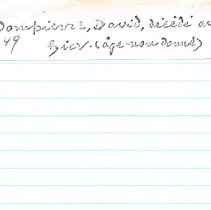 Dompierre, David, décédé
49 hier. (âge non donné)